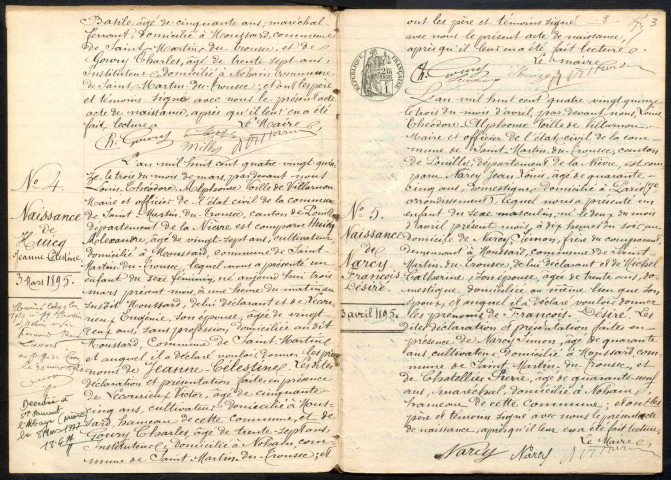 Basile, âgé de cinquante ans, maréchal
ferrant, domicilié à Moussard, commune
de Saint-Martin-du-Tronsec, et de
Goury Charles, âgé de trente sept ans,
Instituteur, domicilié à Nohain, commune
de Saint-Martin-du-Tronsec; et ont les père
et témoins signé avec nous le présent acte
de naissance, après qu'il leur en a été
fait lecture.
Le Maire
Ch. Goury
No 4.
Naissance
de
Hucq
Jeanne Célestine.
3 Mars 1895.
L'an mil huit cent quatre vingt quin-
ze, le trois du mois de mars, par devant nous
Louis Théodore Alphonse
Maire et officier de l'état civil de la commune
de Saint-Martin-du-Tronsec, canton de Pouilly
département de la Nièvre est comparu Hucq
Alexandre, âgé de vingt-sept ans, cultivateur
domicilié à Moussard, commune de Saint
Martin-du-Tronsec, lequel nous a présenté un
enfant du sexe féminin, né aujourd'hui trois
mars présent mois, à une heure du matin au
susdit Moussard, de lui déclarant et de
Eugénie, son épouse, âgée de vingt
ans, sans profession, domiciliée au dit
Moussard Commune de Saint Martin
et auquel il a déclaré vouloir donner les pré-
noms de Jeanne-Célestine. Les dites
déclaration et présentation faites en présence
de Victor, âgé de cinquante-
cinq ans, cultivateur, domicilié à Mous-
sard, hameau de cette commune, et de
Goury Charles, âgé de trente-sept ans,
Instituteur, domicilié à Nohain, com-
mune de Saint-Martin-du-Tronsec; et
Décédée à
St
l'Abbaye (Nièvre)
le
3
ont les père et témoins signé
avec nous le présent acte de naissance,
après qu'il leur en a été fait lecture.
Le maire
Ch. Goury
RÉPUBLIQUE FRANÇAISE
No 5.
Naissance
de
Narcy
François
Désiré.
3 avril 1895.
L'an mil huit cent quatre vingt quinze
le trois du mois d'avril, par devant nous, Louis
Théodore Alphonse
Maire et officier de l'état civil de la com-
mune de Saint Martin du Tronsec, canton
de Pouilly, département de la Nièvre, est com-
paru Narcy Jean Louis, âgé de quarante-
cinq ans, domestique, domicilié à Paris
arrondissement), lequel nous a présenté un
enfant du sexe masculin, né le deux du mois
d'avril présent mois, à dix heures du soir, au
domicile de Narcy Simon, frère du comparant,
demeurant à Moussard, commune de Saint-
Martin du Tronsec, de lui déclarant et de Michel
Catherine, son épouse, âgée de trente neuf, do-
mestique domiciliée au même lieu que son
époux, et auquel il a déclaré vouloir donner
les prénoms de François-Désiré. Les
dites déclaration et présentation faites en
présence de Narcy Simon, âgé de quarante
ans, cultivateur, domicilié à Moussard com-
mune de Saint Martin-du-Tronsec, et de
Chatellier Pierre, âgé de quarante-neuf
ans, maréchal, domicilié à Nohain,
hameau de cette commune, et ont les
père et témoins signé avec nous le présent acte
de naissance, après qu'il leur en a été fait lecture.
Le Maire
Narcy Narcy